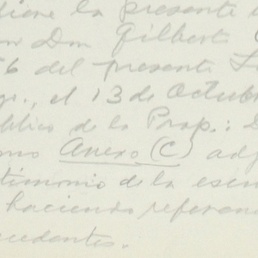 tiene la presente
Don Gilbert
6 del presente
, el 13 de Octubre
de la Prop.:
Anexo (C)
timonio de la
haciendo referen
cedentes.